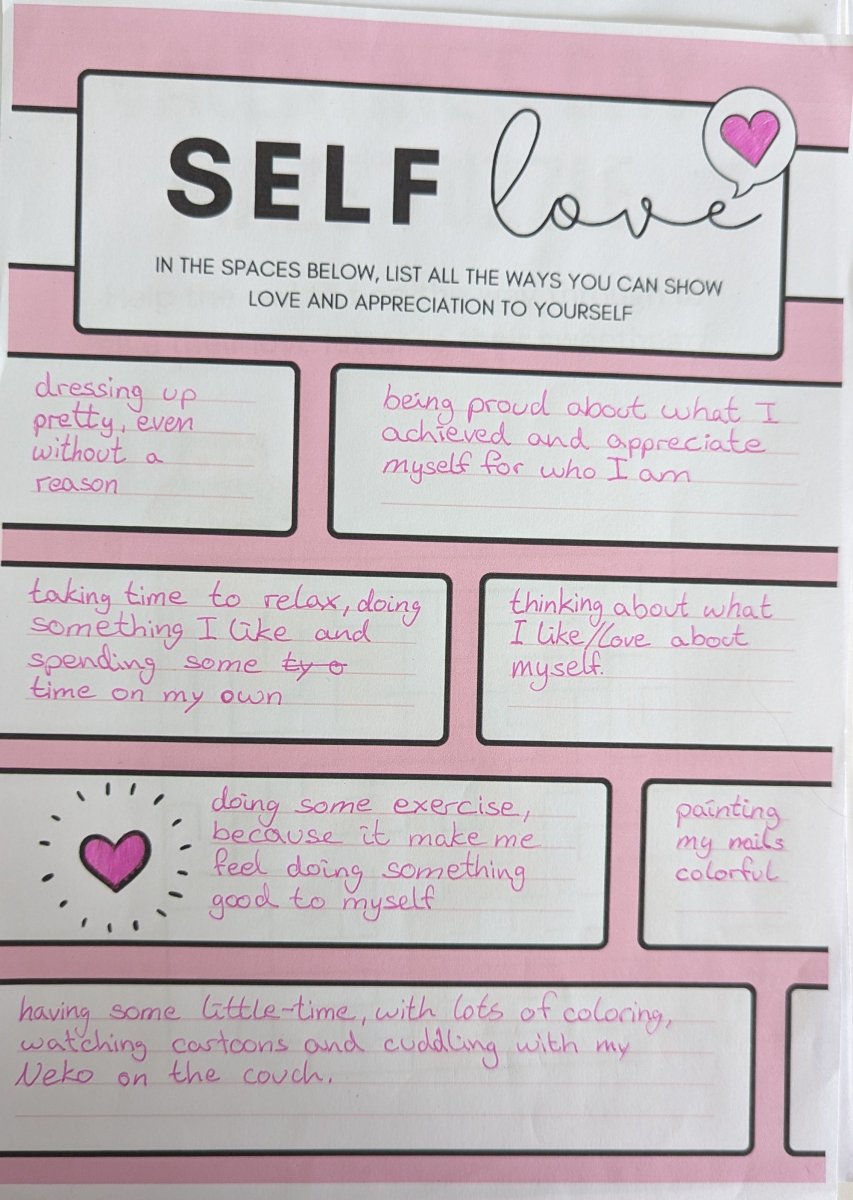 SELF love
IN THE SPACES BELOW, LIST ALL THE WAYS YOU CAN SHOW
LOVE AND APPRECIATION TO YOURSELF
dressing up
pretty, even
without a
reason
being proud about what I
achieved and appreciate
myself for who I am
taking time to relax, doing
something I like and
spending some ty o
time on my own
thinking about what
I like//love about
myself.
doing some exercise,
because it make me
feel doing something
good to myself
painting
my nails
colorful
having some little-time, with lots of coloring,
watching cartoons and cuddling with my
Neko on the couch.